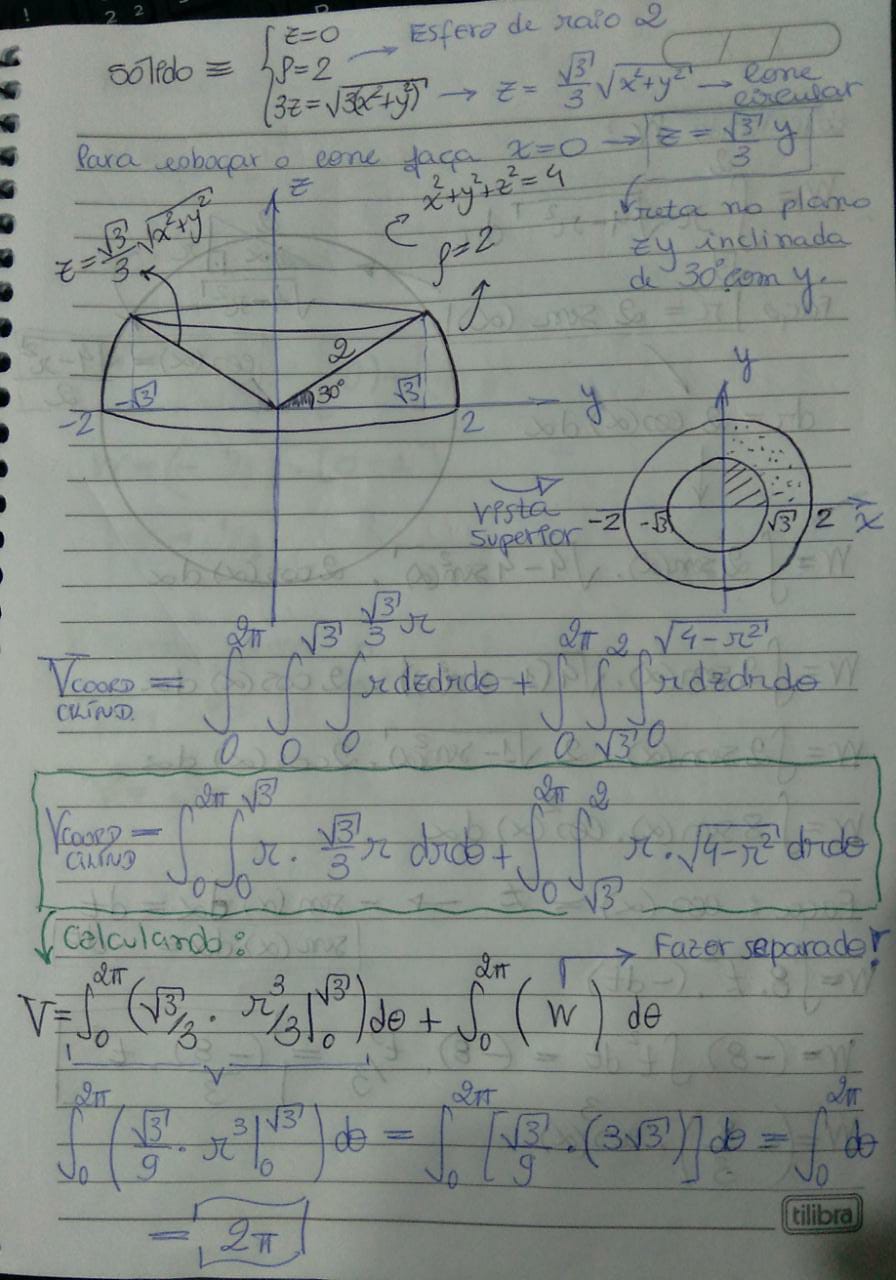 Sólido ≡ { z=0
ρ=2 → Esfera de raio 2
3z=√3(x²+y²) → z = √3/3 √x²+y² → Cone circular
Para esboçar o cone faça x=0 → z = √3/3 y
reta no plano
zy inclinada
de 30° com y.
z
x²+y²+z²=4
ρ=2
z=√3/3 √x²+y²
2
30°
-√3 √3
-2 2 y
y
Vista
Superior
-2 -√3 √3 2 x
V COORD CILÍND. = ∫₀^2π ∫₀^√3 ∫₀^(√3/3 r) r dz dr dθ + ∫₀^2π ∫_√3^2 ∫₀^√4-r² r dz dr dθ
V COORD CILÍND = ∫₀^2π ∫₀^√3 r · √3/3 r dr dθ + ∫₀^2π ∫_√3^2 r · √4-r² dr dθ
Calculando:
Fazer separado!
V = ∫₀^2π (√3/3 · r³/3 |₀^√3) dθ + ∫₀^2π ( W ) dθ
∫₀^2π (√3/9 · r³ |₀^√3) dθ = ∫₀^2π [√3/9 · (3√3)] dθ = ∫₀^2π dθ
= 2π
tilibra